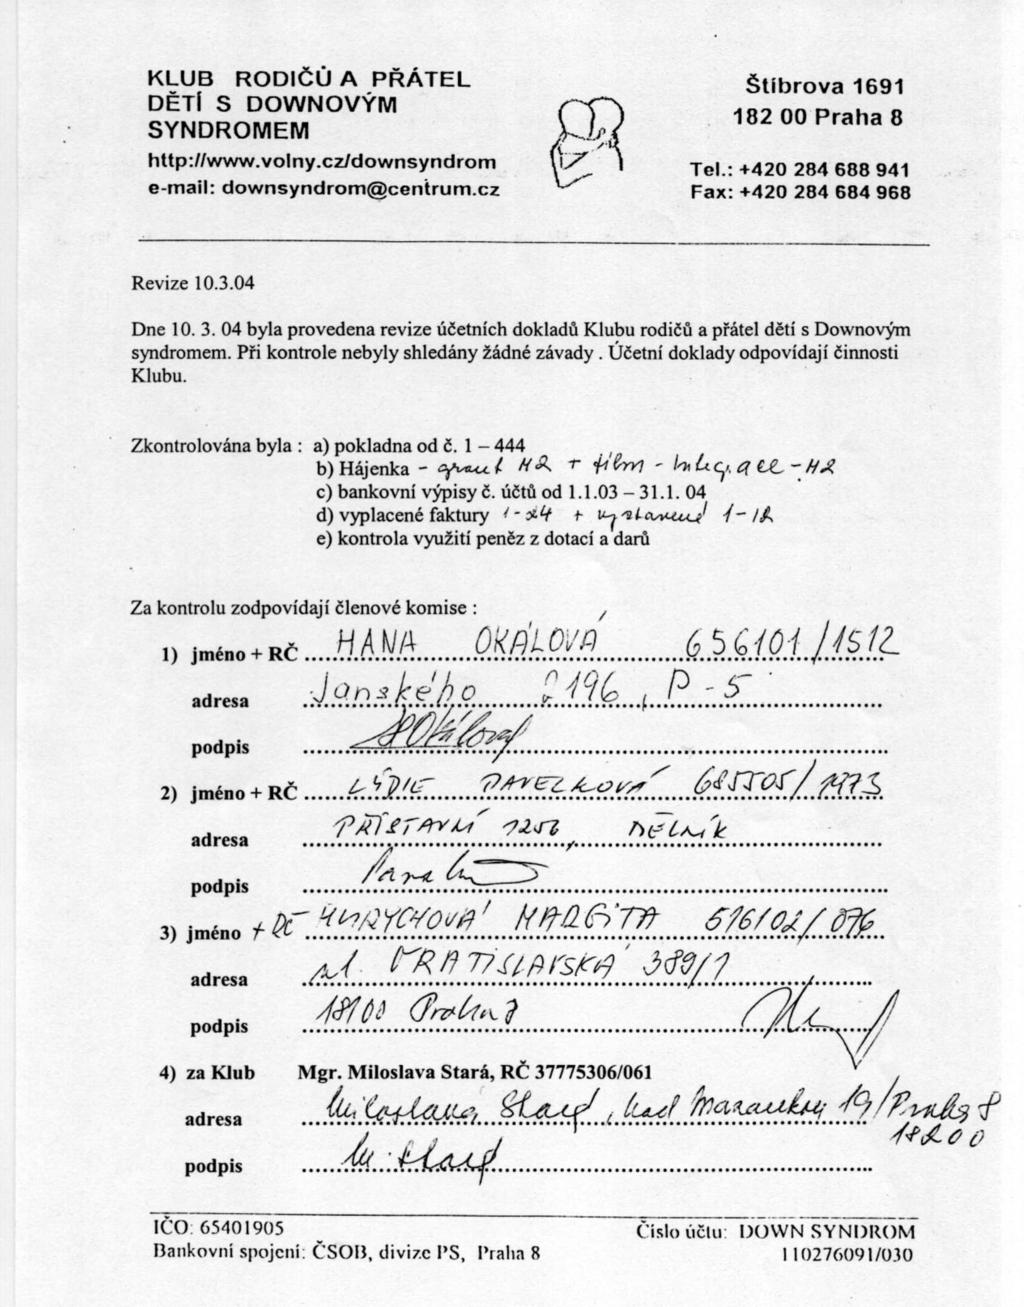 KLUB RODIČŮ A PŘÁTEL
DĚTÍ S DOWNOVÝM
SYNDROMEM
http://www.volny.cz/downsyndrom
e-mail: downsyndrom@centrum.cz
Štíbrova 1691
182 00 Praha 8
Tel.: +420 284 688 941
Fax: +420 284 684 968
Revize 10.3.04
Dne 10. 3. 04 byla provedena revize účetních dokladů Klubu rodičů a přátel dětí s Downovým
syndromem. Při kontrole nebyly shledány žádné závady . Účetní doklady odpovídají činnosti
Klubu.
Zkontrolována byla : a) pokladna od č. 1 – 444
b) Hájenka - grant H2 + film - - H2
c) bankovní výpisy č. účtů od 1.1.03 – 31.1. 04
d) vyplacené faktury + vystavené 1-12
e) kontrola využití peněz z dotací a darů
Za kontrolu zodpovídají členové komise :
1) jméno + RČ HANA OKÁLOVÁ 656101/1512
adresa Janského 2196, P-5
podpis
2) jméno + RČ LÝDIE PAVELKOVÁ 685505/
adresa
podpis
3) jméno + RČ MARGITA
adresa ul. VRATISLAVSKÁ 389/1
podpis 18100 Praha 8
4) za Klub Mgr. Miloslava Stará, RČ 37775306/061
adresa Miloslava Stará, nad 19/Praha 8
18200
podpis M. Stará
IČO: 65401905
Bankovní spojení: ČSOB, divize PS, Praha 8
Číslo účtu: DOWN SYNDROM
110276091/030